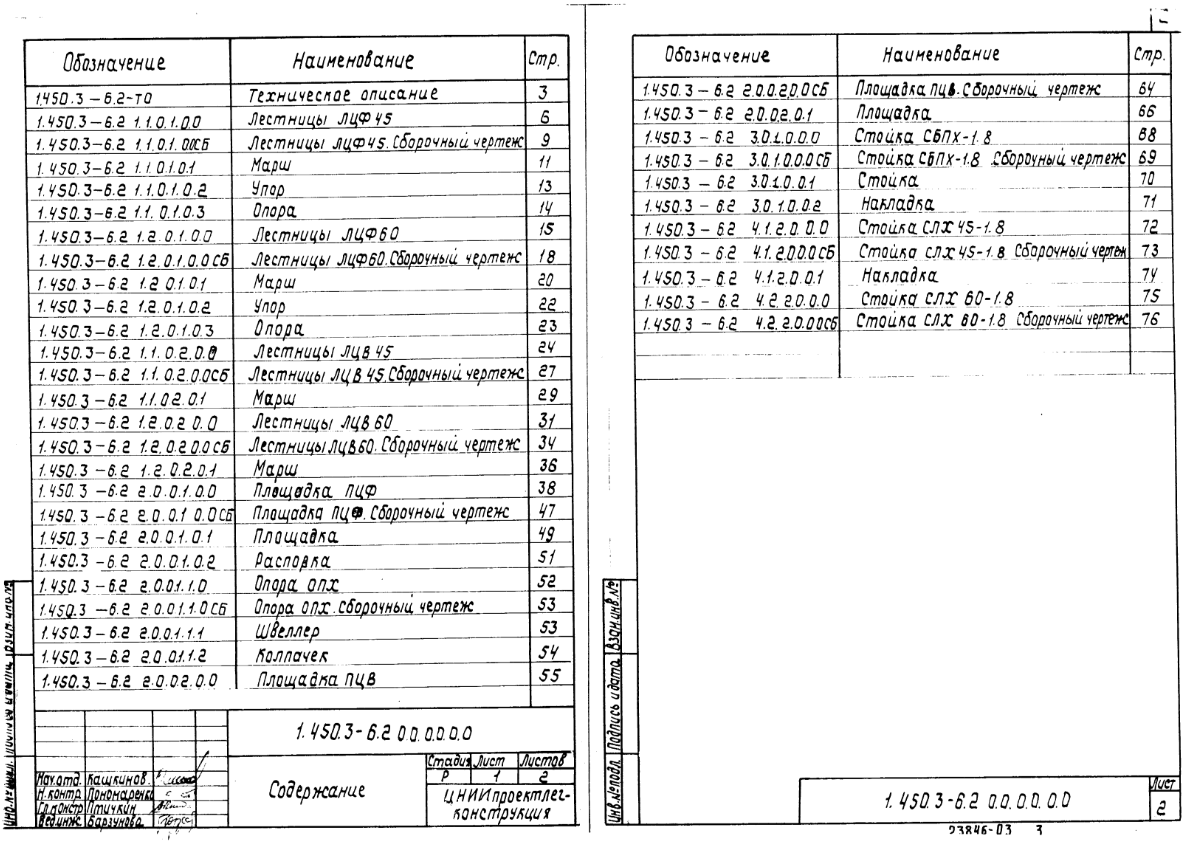 Обозначение Наименование Стр.
1.450.3-6.2-ТО Техническое описание 3
1.450.3-6.2 1.1.0.1.0.0 Лестницы ЛЦФ45 6
1.450.3-6.2 1.1.0.1.00СБ Лестницы ЛЦФ45. Сборочный чертеж 9
1.450.3-6.2 1.1.0.1.0.1 Марш 11
1.450.3-6.2 1.1.0.1.0.2 Упор 13
1.450.3-6.2 1.1.0.1.0.3 Опора 14
1.450.3-6.2 1.2.0.1.0.0 Лестницы ЛЦФ60 15
1.450.3-6.2 1.2.0.1.0.0СБ Лестницы ЛЦФ60. Сборочный чертеж 18
1.450.3-6.2 1.2.0.1.0.1 Марш 20
1.450.3-6.2 1.2.0.1.0.2 Упор 22
1.450.3-6.2 1.2.0.1.0.3 Опора 23
1.450.3-6.2 1.1.0.2.0.0 Лестницы ЛЦВ45 24
1.450.3-6.2 1.1.0.2.0.0СБ Лестницы ЛЦВ45. Сборочный чертеж 27
1.450.3-6.2 1.1.0.2.0.1 Марш 29
1.450.3-6.2 1.2.0.2.0.0 Лестницы ЛЦВ60 31
1.450.3-6.2 1.2.0.2.0.0СБ Лестницы ЛЦВ60. Сборочный чертеж 34
1.450.3-6.2 1.2.0.2.0.1 Марш 36
1.450.3-6.2 2.0.0.1.0.0 Площадка ПЦФ 38
1.450.3-6.2 2.0.0.1.0.0СБ Площадка ПЦФ. Сборочный чертеж 47
1.450.3-6.2 2.0.0.1.0.1 Площадка 49
1.450.3-6.2 2.0.0.1.0.2 Распорка 51
1.450.3-6.2 2.0.0.1.1.0 Опора ОПХ 52
1.450.3-6.2 2.0.0.1.1.0СБ Опора ОПХ. Сборочный чертеж 53
1.450.3-6.2 2.0.0.1.1.1 Швеллер 53
1.450.3-6.2 2.0.0.1.1.2 Колпачек 54
1.450.3-6.2 2.0.0.2.0.0 Площадка ПЦВ 55
1.450.3-6.2 0.0.0.0.0.0
Содержание
Стадия Лист Листов
Р 1 2
ЦНИИпроектлег-
конструкция
Нач.отд. Кашкинов
Н.контр Пономаренко
Гл.констр Птичкин
Вед.инж. Барзунова
Обозначение Наименование Стр.
1.450.3-6.2 2.0.0.2.0.0СБ Площадка ПЦВ. Сборочный чертеж 64
1.450.3-6.2 2.0.0.2.0.1 Площадка 66
1.450.3-6.2 3.0.1.0.0.0 Стойка СБПХ-1.8 68
1.450.3-6.2 3.0.1.0.0.0СБ Стойка СБПХ-1.8 Сборочный чертеж 69
1.450.3-6.2 3.0.1.0.0.1 Стойка 70
1.450.3-6.2 3.0.1.0.0.2 Накладка 71
1.450.3-6.2 4.1.2.0.0.0 Стойка СЛХ45-1.8 72
1.450.3-6.2 4.1.2.0.0.0СБ Стойка СЛХ45-1.8 Сборочный чертеж 73
1.450.3-6.2 4.1.2.0.0.1 Накладка 74
1.450.3-6.2 4.2.2.0.0.0 Стойка СЛХ 60-1.8 75
1.450.3-6.2 4.2.2.0.0.0СБ Стойка СЛХ 60-1.8 Сборочный чертеж 76
Инв.№подл. Подпись и дата Взам.инв.№
1.450.3-6.2 0.0.0.0.0.0
Лист
2
23846-03 3